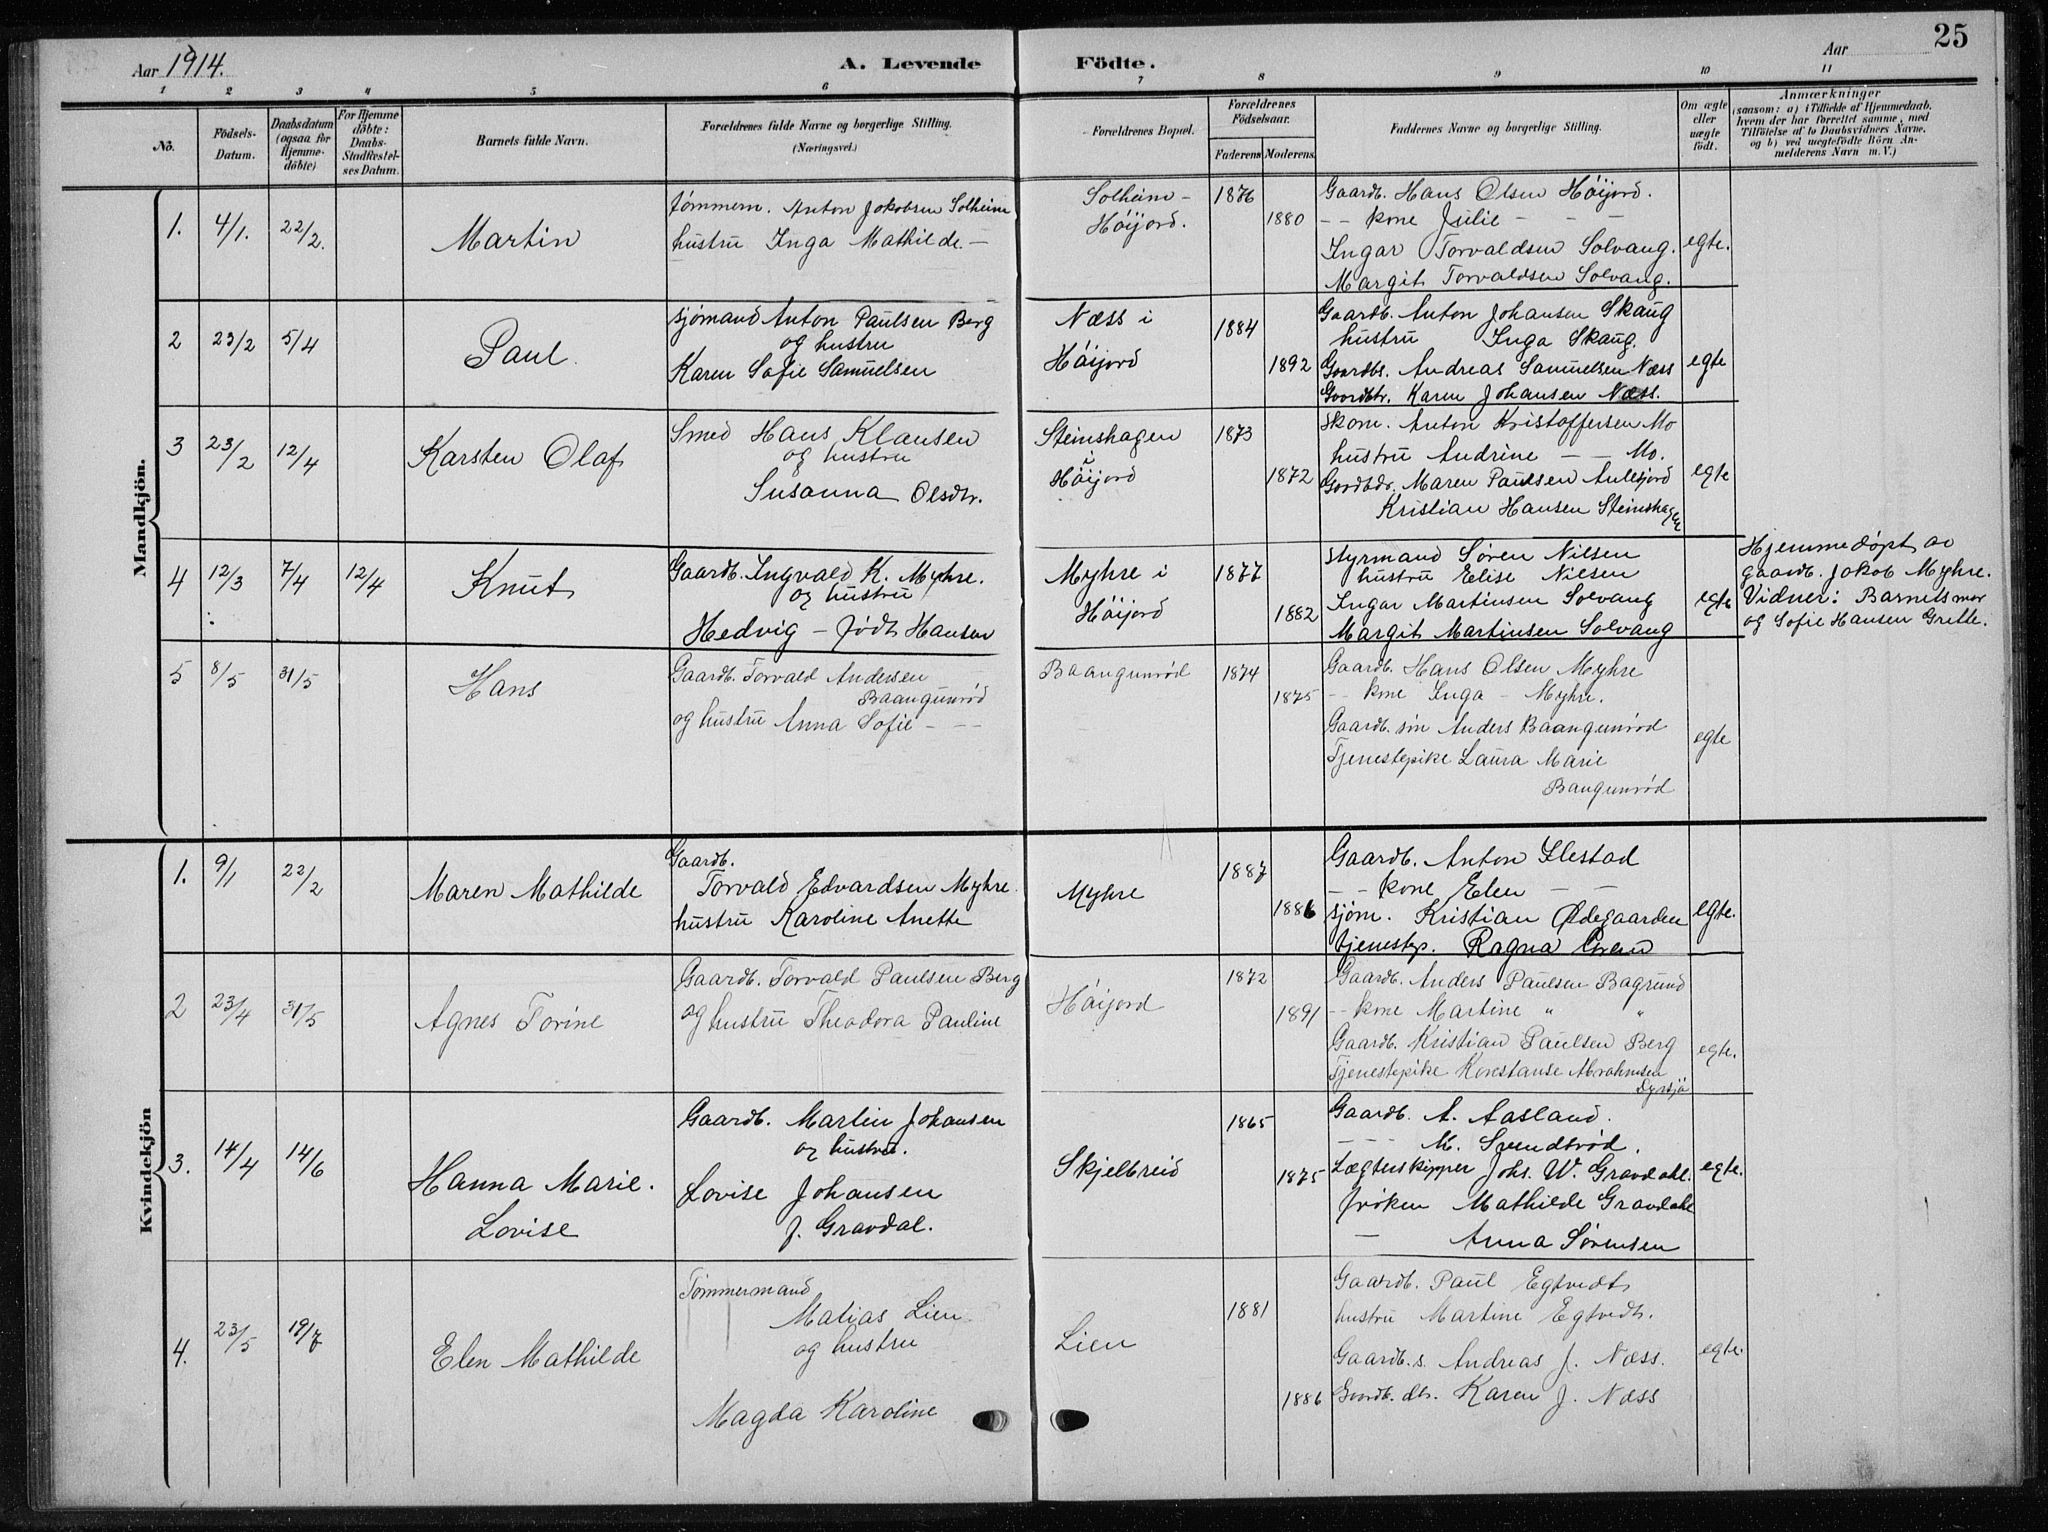 Aar 1914.
A. Levende Födte.
Aar
25
1 2 3 4 5 6 7 8 9 10 11
No.
Födsels-Datum.
Daabsdatum (ogsaa for Hjemmedöbte)
For Hjemmedöbte: Daabs-Stadfæstelses Datum.
Barnets fulde Navn.
Forældrenes fulde Navne og borgerlige Stilling. (Næringsvei.)
Forældrenes Bopæl.
Forældrenes Födselsaar.
Faderens. Moderens.
Faddernes Navne og borgerlige Stilling.
Om ægte eller uægte födt.
Anmærkninger
(saasom: a) i Tilfælde af Hjemmedaab, hvem der har forrettet samme, med Tilföielse af to Daabsvidners Navne, og b) ved uegtefödte Börn Anmelderens Navn m. V.)
Mandkjön.
1. 4/1. 22/2. Martin
tømmerm. Anton Jakobsen Solheim
hustru Inga Mathilde –
Solheim –
Høijord.
1876
1880
Gaardb. Hans Olsen Høijord.
-- kone Julie - - -
Ingar Torvaldsen Solvang.
Margit Torvaldsen Solvang.
egte.
2 23/2 5/4 Paul.
sjømand Anton Paulsen Berg
og hustru
Karen Sofie Samuelsen
Næss i
Høijord
1884
1892
Gaardb. Anton Johansen Skaug
hustru Inga Skaug.
Gaardbs. Andreas Samuelsen Næss
Gaardbtr. Karen Johansen Næss.
egte
3 23/2 12/4 Karsten Olaf
Smed Hans Klausen
og hustru
Susanna Olsdtr.
Steinshagen
i
Høijord
1873
1872
Skom. Anton Kristoffersen Mo
hustru Andrine — — Mo.
Gardbdr. Maren Paulsen Aulesjord
Kristian Hansen Steinshagen
egte
4 12/3 7/4 12/4 Knut
Gaardb. Ingvald K. Myhre.
og hustru
Hedvig – født Hansen
Myhre i
Høijord
1877
1882
styrmand Søren Nilsen
hustru Elise Nilsen
Ingar Martinsen Solvang
Margit Martinsen Solvang
egte
Hjemmedøpt av
gaardb. Jakob Myhre.
Vidner: Barnets mor
og Sofie Hansen Grette.
5 8/5 31/5 Hans
Gaardb. Torvald Andersen
Baangunrød
og hustru Anna Sofie - - -
Baangunrød
1874
1875
Gaardb. Hans Olsen Myhre
-- kone Inga – Myhre.
Gaardb. søn Anders Baangunrød
Tjenestepike Laura Marie
Bangunrød
egte
Kvindekjön
1. 9/1 22/2 Maren Mathilde
Gaardb.
Torvald Edvardsen Myhre.
hustru Karoline Anette
Myhre
1887
1886
Gaardb. Anton Ilestad
-- kone Elen — —
sjøm. Kristian Ødegaarden
tjenestep. Ragna
egte.
2 23/4 31/5 Agnes Torine
Gaardb. Torvald Paulsen Berg
og hustru Theodora Pauline
Høijord
1872
1891
Gaardb. Anders Paulsen Bagrund
-- kone Martine " "
Gaardb. Kristian Paulsen Berg
Tjenestepike Konstanse Abrahmsen
Dyrsjø
egte.
3. 14/4 14/6 Hanna Marie.
Lovise
Gaardb. Martin Johansen
og hustru.
Lovise Johansen
f. Gravdal.
Skjelbreid
1865
1875
Gaardb. A. Aasland.
- - - M. Svendsrød.
Lægterskipper Johs. W. Gravdahl.
frøken Mathilde Gravdahl
— Anna Sørensen
egte.
4. 23/5 19/7 Elen Mathilde
Tømmermand
Matias Lien
og hustru
Magda Karoline
Lien
1881
1886
Gaardb. Paul Egtvedt
hustru Martine Egtvedt.
Gaardb. s. Andreas J. Næss.
Gaardb. dtr. Karen J. Næss
egte.